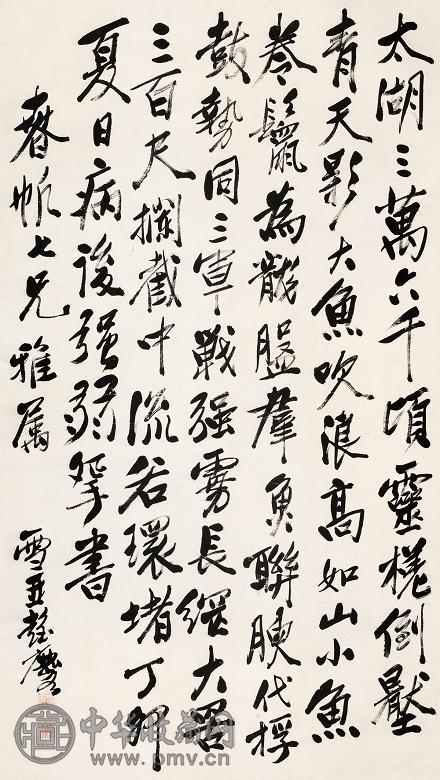 太湖三萬六千頃靈槎倒壓
青天影大魚吹浪高如山小魚
卷鬣為龍盤群魚聯代桴
鼓勢同三軍戰强虜長網大罟
三百尺攔截中流若環堵丁卯
夏日病後强弱書
春帆七兄雅属
雪亞
中华收藏网
www.pmv.cn